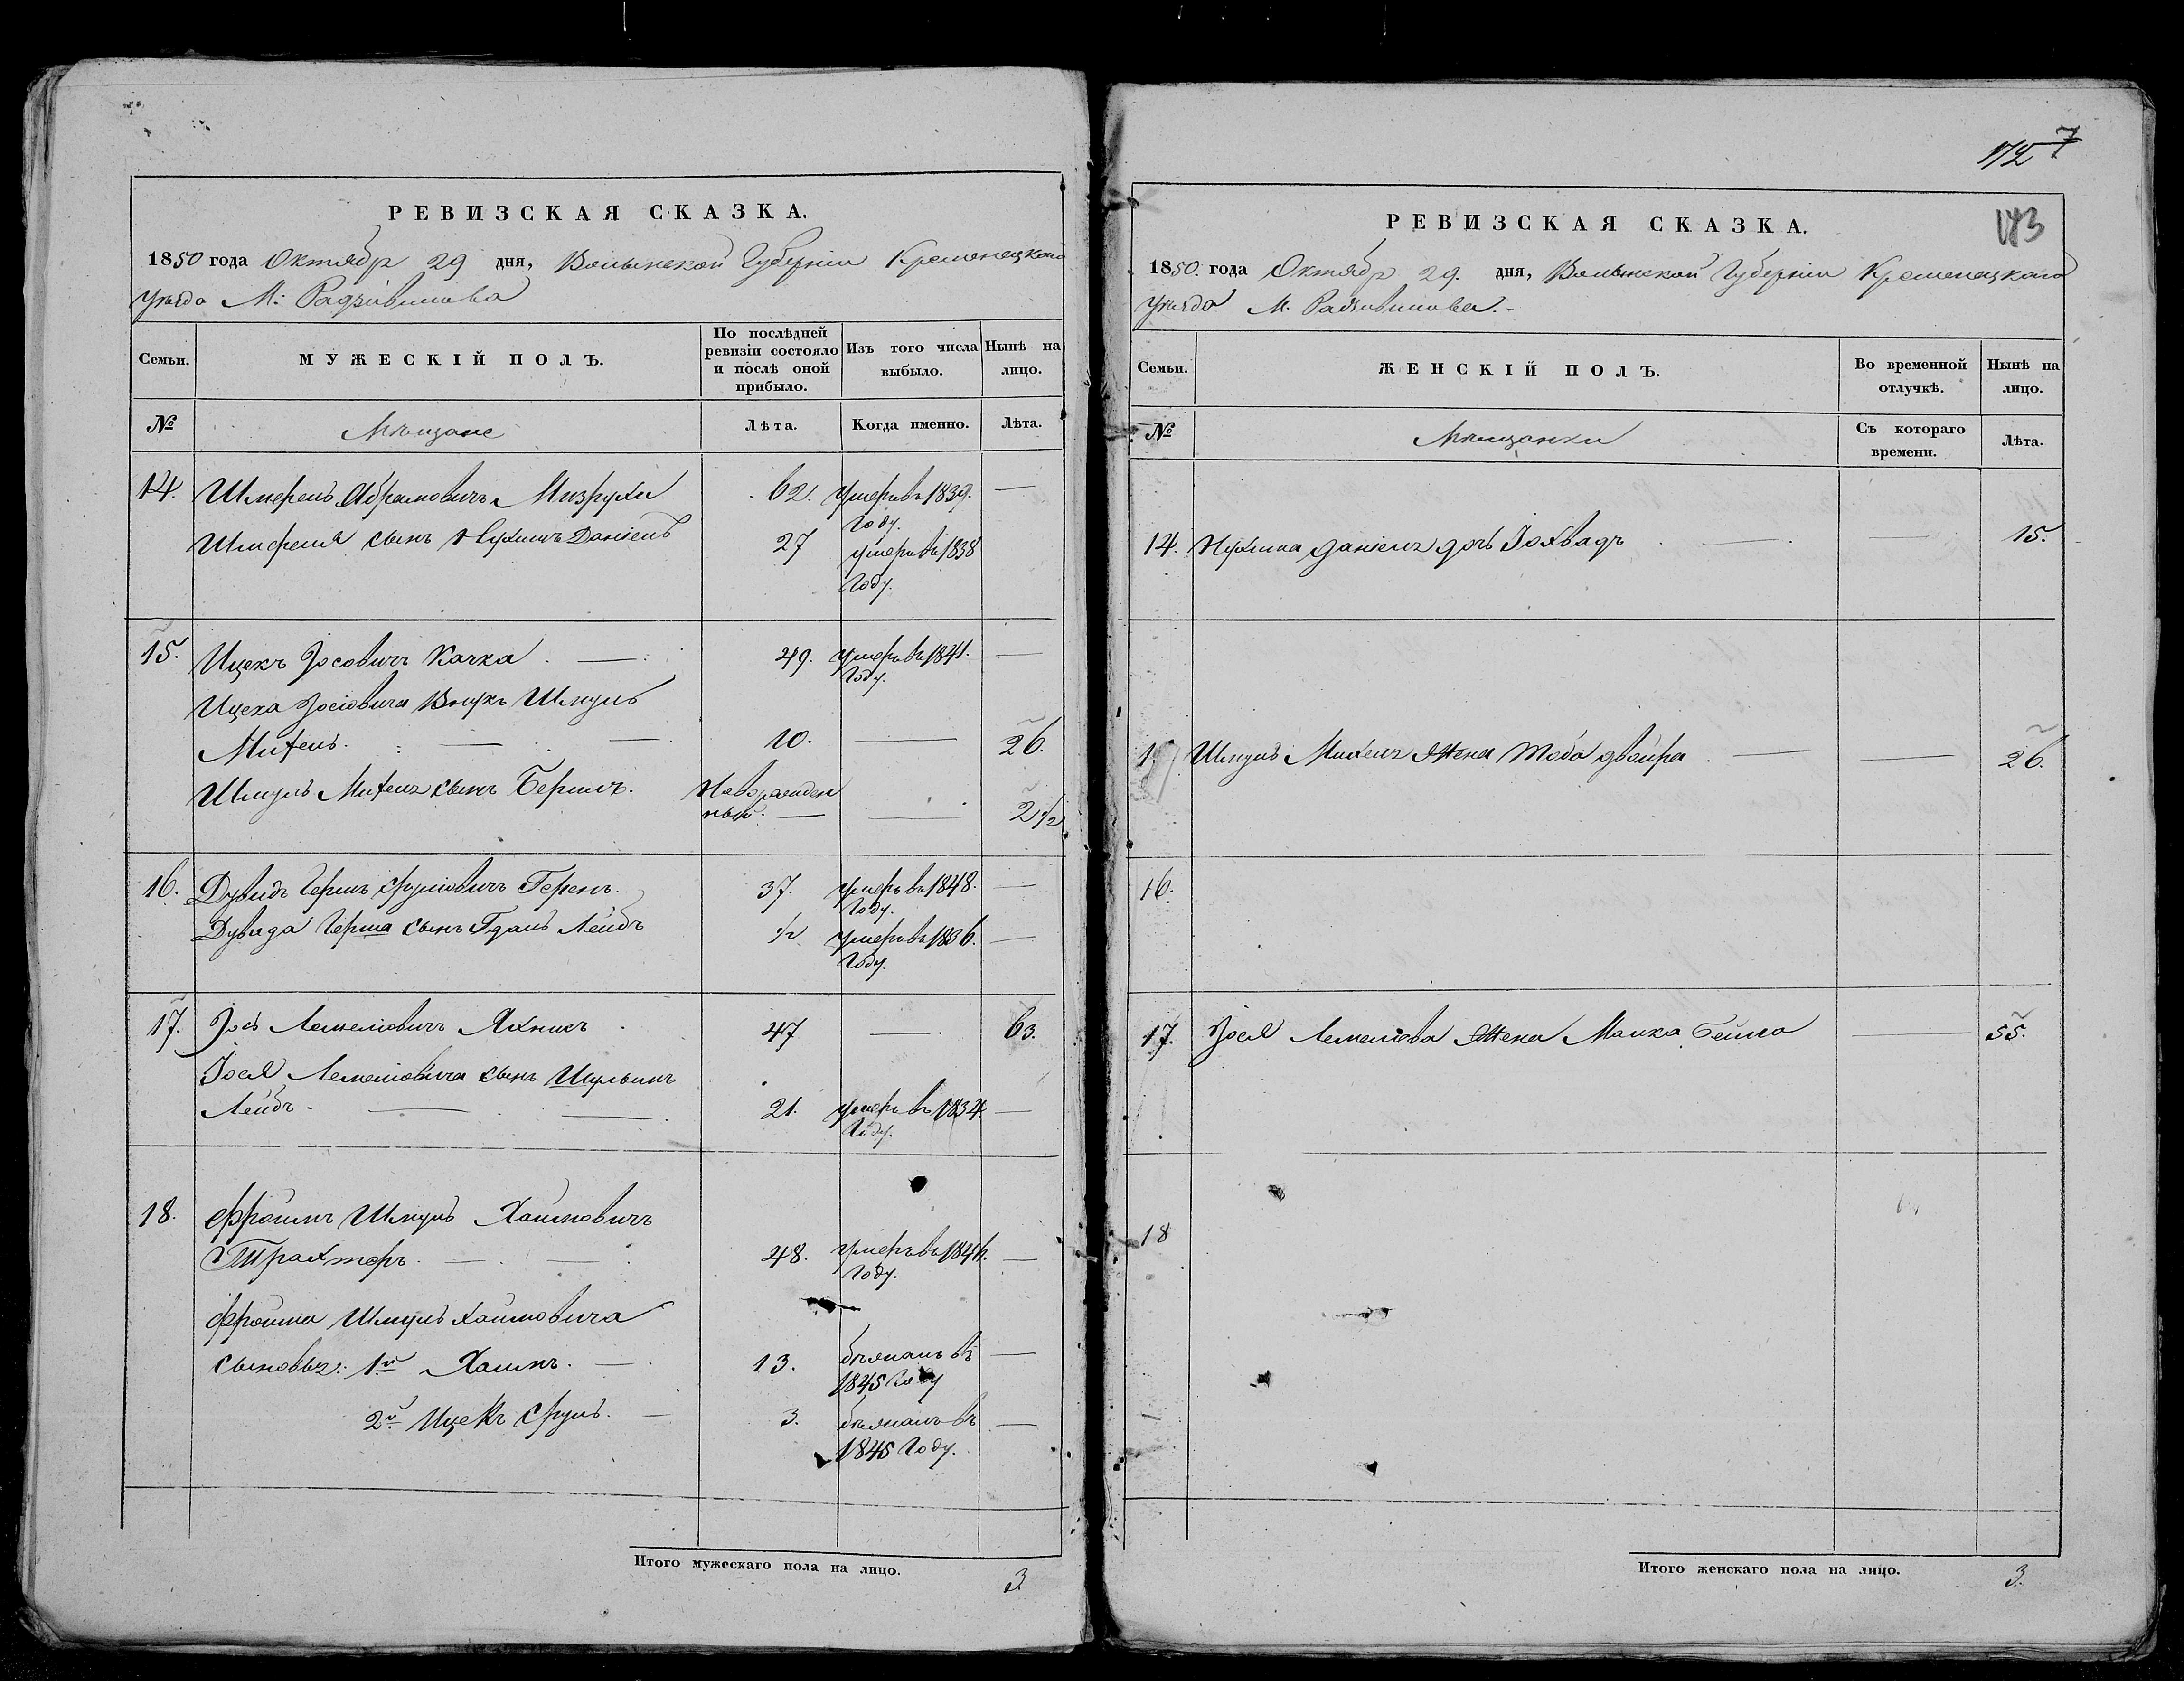 РЕВИЗСКАЯ СКАЗКА.
1850 года Октябр 29 дня, Волынской Губерніи Кременецкого
уѣзда М: Радзивилова
Семьи.
МУЖЕСКІЙ ПОЛЪ.
По послѣдней ревизіи состояло и послѣ оной прибыло.
Изъ того числа выбыло.
Нынѣ на лицо.
№
Мѣщане
Лѣта.
Когда именно.
Лѣта.
14. Шмерель Абрамовичъ Мизрухи 62. умеръ въ 1839. —
Году.
Шмереля сынъ Нухимъ Даніель 27 умеръ въ 1838
Году.
15. Ицекъ Іосовичъ Качка . — 49. умеръ въ 1841. —
Году.
Ицека Іосіовича Внукъ Шмуль
Михель. — — 10. — 26.
Шмуль Михель сынъ Беришъ. Новорожден
ный. — — 2 1/2
16. Дувидъ Гершъ Сруліовичъ Геренъ. 37. умеръ въ 1848. —
Году.
Дувида Герша сынъ Гдаль Лейбъ 1/2 умеръ въ 1836. —
Году.
17. Іось Лемеліовичъ Яхникъ 47 — 63.
Іося Лемеліовича сынъ Шульимъ
Лейбъ. — — 21. умеръ въ 1834. —
Году.
18. Фроимъ Шмуль Хаимовичъ
Трахторъ. — — 48. умеръ въ 1846. —
Году.
Фроима Шмуль Хаимовича
сыновья: 1й Хаимъ. — 13. бѣжалъ въ —
1845 Году
2й Ицекъ Сруль. — 3. бѣжалъ въ —
1845 Году.
Итого мужескаго пола на лицо.
3.
7
172
173
РЕВИЗСКАЯ СКАЗКА.
1850. года Октябр 29. дня, Волынской Губерніи Кременецкаго
уѣзда М. Радзивилова. -
Семьи.
ЖЕНСКІЙ ПОЛЪ.
Во временной отлучкѣ.
Нынѣ на лицо.
№
Мѣщанки
Съ котораго времени.
Лѣта.
14. Нухима Даніель дочь Іохвадъ — — 15.
15. Шмуль Михель Жена Тоба Двойра — — 26.
16.
17. Іося Лемеліова Жена Малка Бейла — 55.
18
Итого женскаго пола на лицо.
3.